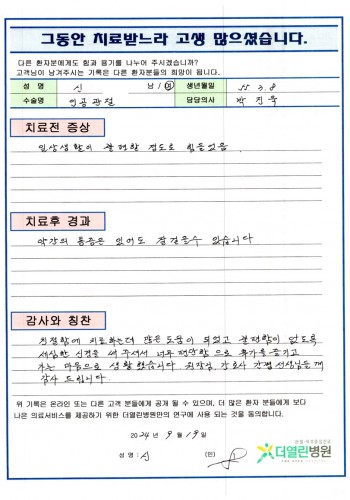 그동안 치료받느라 고생 많으셨습니다.
다른 환자분에게도 힘과 용기를 나누어 주시겠습니까?
고객님이 남겨주시는 기록은 다른 환자분들의 희망이 됩니다.
성 명 신 남 / 여 생년월일 55. 3. 8
수술명 인공관절 담당의사 박진욱
치료전 증상
일상생활이 불편할 정도로 힘들었음.
치료후 경과
약간의 통증은 있어도 잘걸을수 있습니다
감사와 칭찬
친절함에 치료하는데 많은 도움이 되었고 불편함이 없도록
세심한 신경을 써 주셔서 너무 편안함으로 휴가를 즐기고
가는 마음으로 생활했습니다 원장님, 간호사 간병선생님들께
감사 드립니다
위 기록은 온라인 또는 다른 고객 분들에게 공개 될 수 있으며, 더 많은 환자 분들에게 보다
나은 의료서비스를 제공하기 위한 더열린병원만의 연구에 사용 되는 것을 동의합니다.
2024년 9월 19일
성 명 : 신 (인)
더열린병원